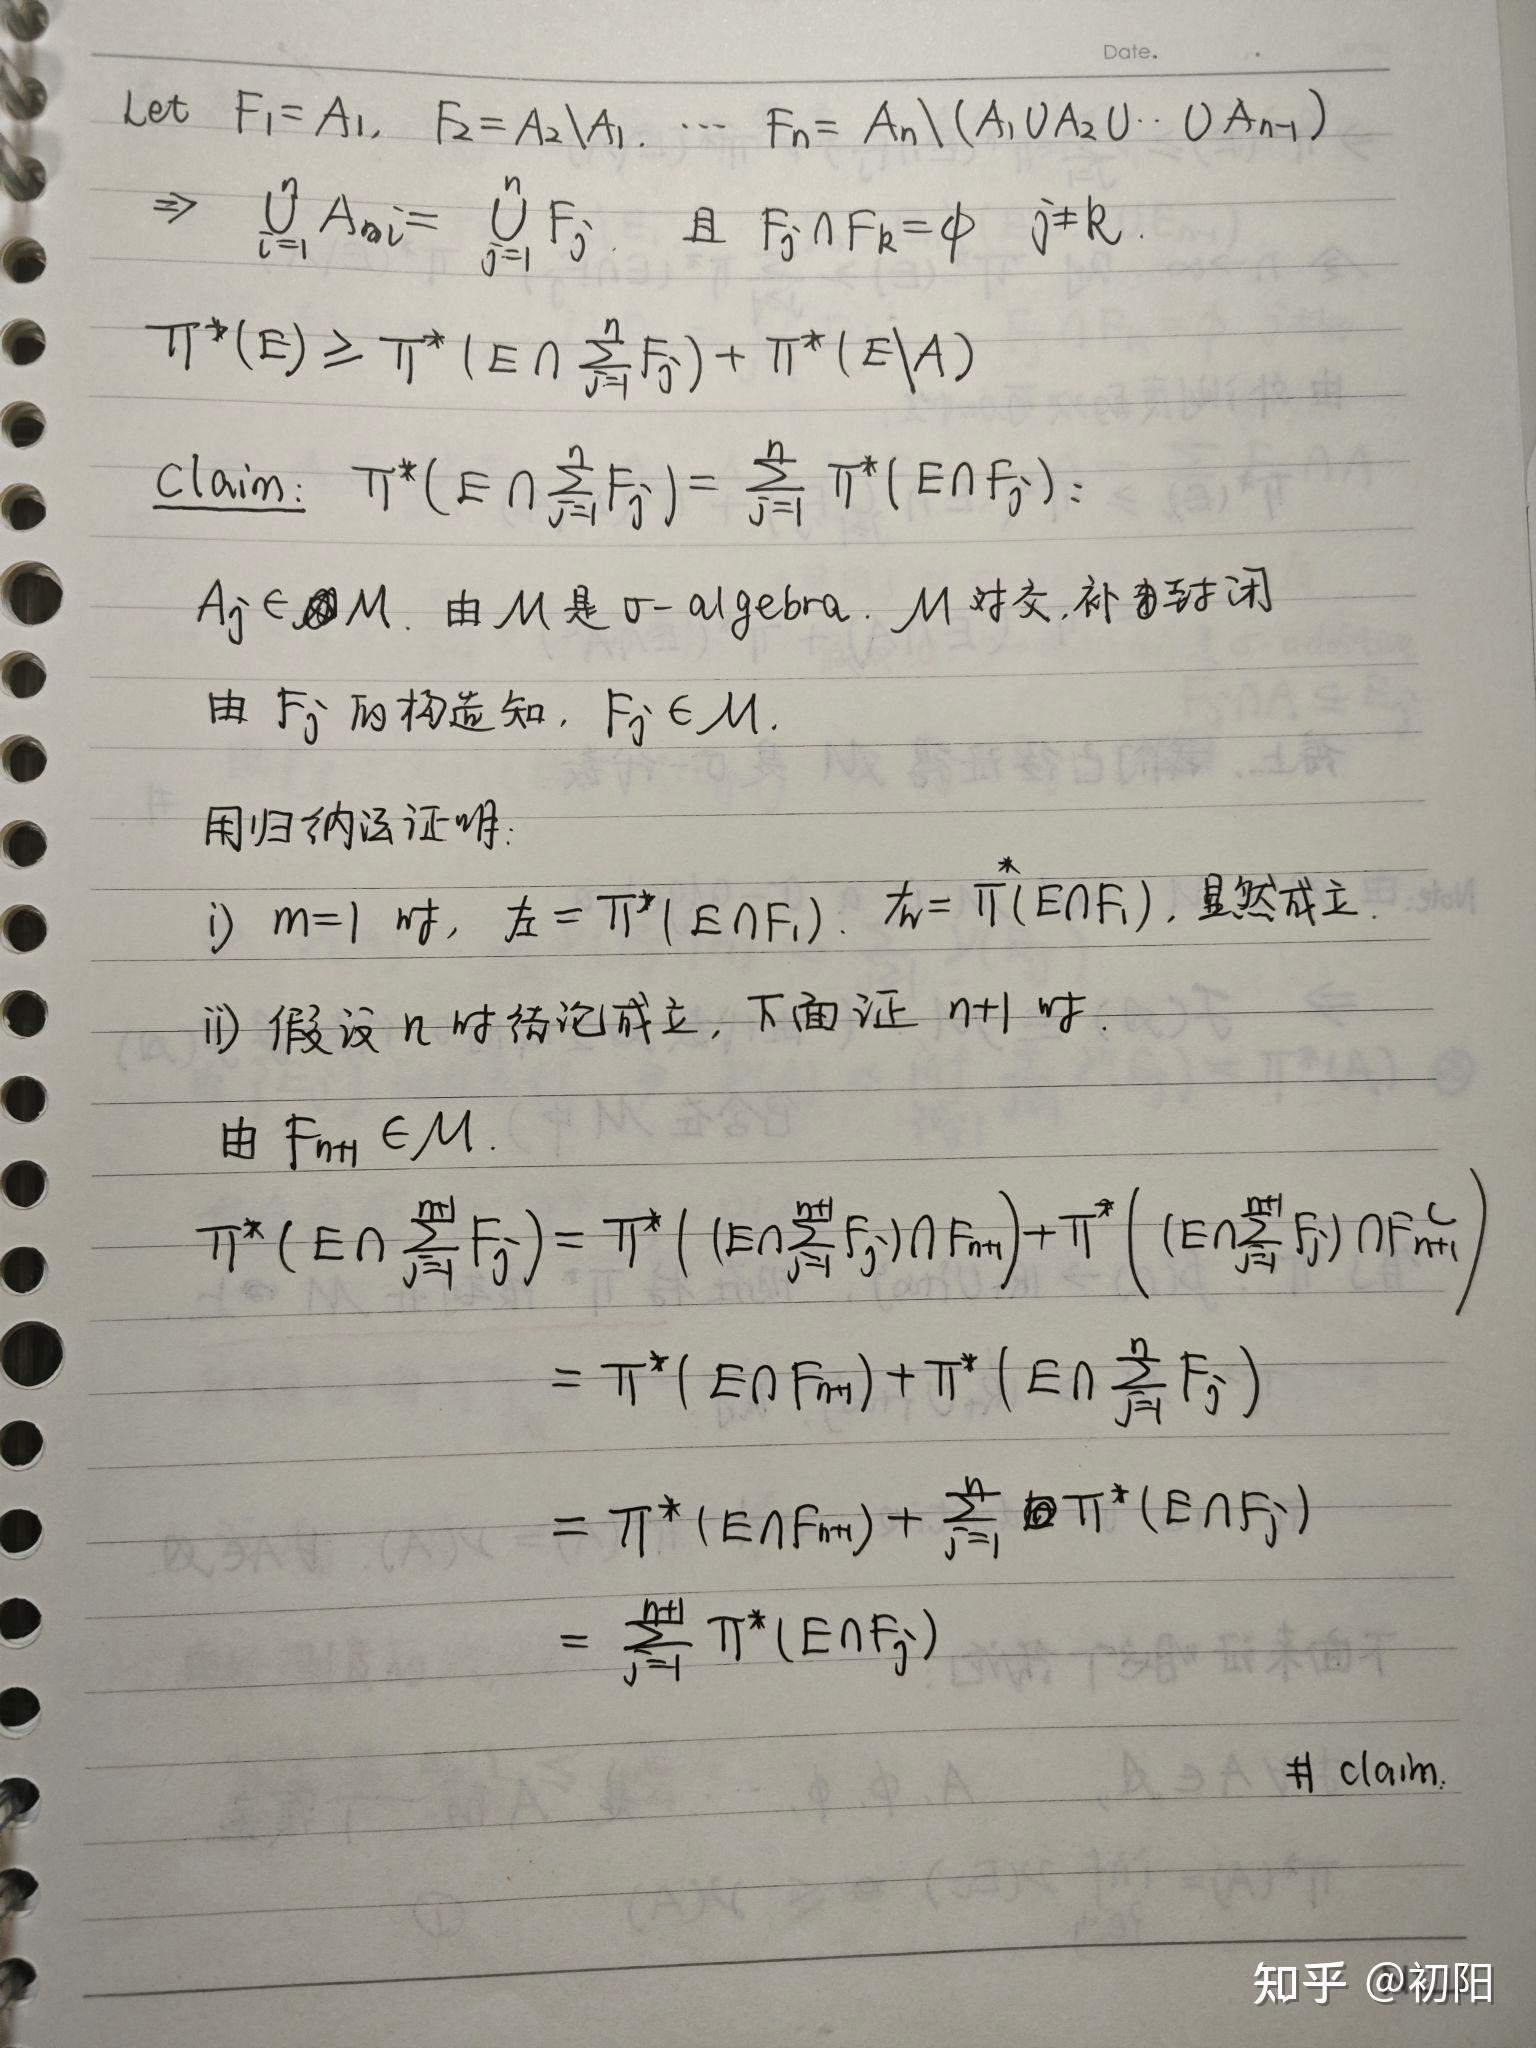 Date.
Let F₁=A₁, F₂=A₂\A₁. ⋯ Fₙ= Aₙ\(A₁∪A₂∪⋯∪Aₙ₋₁)
⇒ ⋃ᵢ₌₁ⁿ Aᵢ = ⋃ⱼ₌₁ⁿ Fⱼ. 且 Fⱼ∩Fₖ=ϕ j≠k.
π*(E) ≥ π*(E∩∑ⱼ₌₁ⁿFⱼ)+π*(E\A)
Claim: π*(E∩∑ⱼ₌₁ⁿFⱼ)=∑ⱼ₌₁ⁿ π*(E∩Fⱼ):
Aⱼ∈M. 由M是σ-algebra. M对交.补封闭
由Fⱼ的构造知, Fⱼ∈M.
用归纳法证明:
i) m=1时, 左=π*(E∩F₁). 右=π*(E∩F₁), 显然成立.
ii) 假设n时结论成立, 下面证 n+1时.
由Fₙ₊₁∈M.
π*(E∩∑ⱼ₌₁ⁿ⁺¹Fⱼ)=π*((E∩∑ⱼ₌₁ⁿ⁺¹Fⱼ)∩Fₙ₊₁)+π*((E∩∑ⱼ₌₁ⁿ⁺¹Fⱼ)∩Fₙ₊₁ᶜ)
=π*(E∩Fₙ₊₁)+π*(E∩∑ⱼ₌₁ⁿFⱼ)
=π*(E∩Fₙ₊₁)+∑ⱼ₌₁ⁿ π*(E∩Fⱼ)
=∑ⱼ₌₁ⁿ⁺¹ π*(E∩Fⱼ)
# claim.
知乎 @初阳